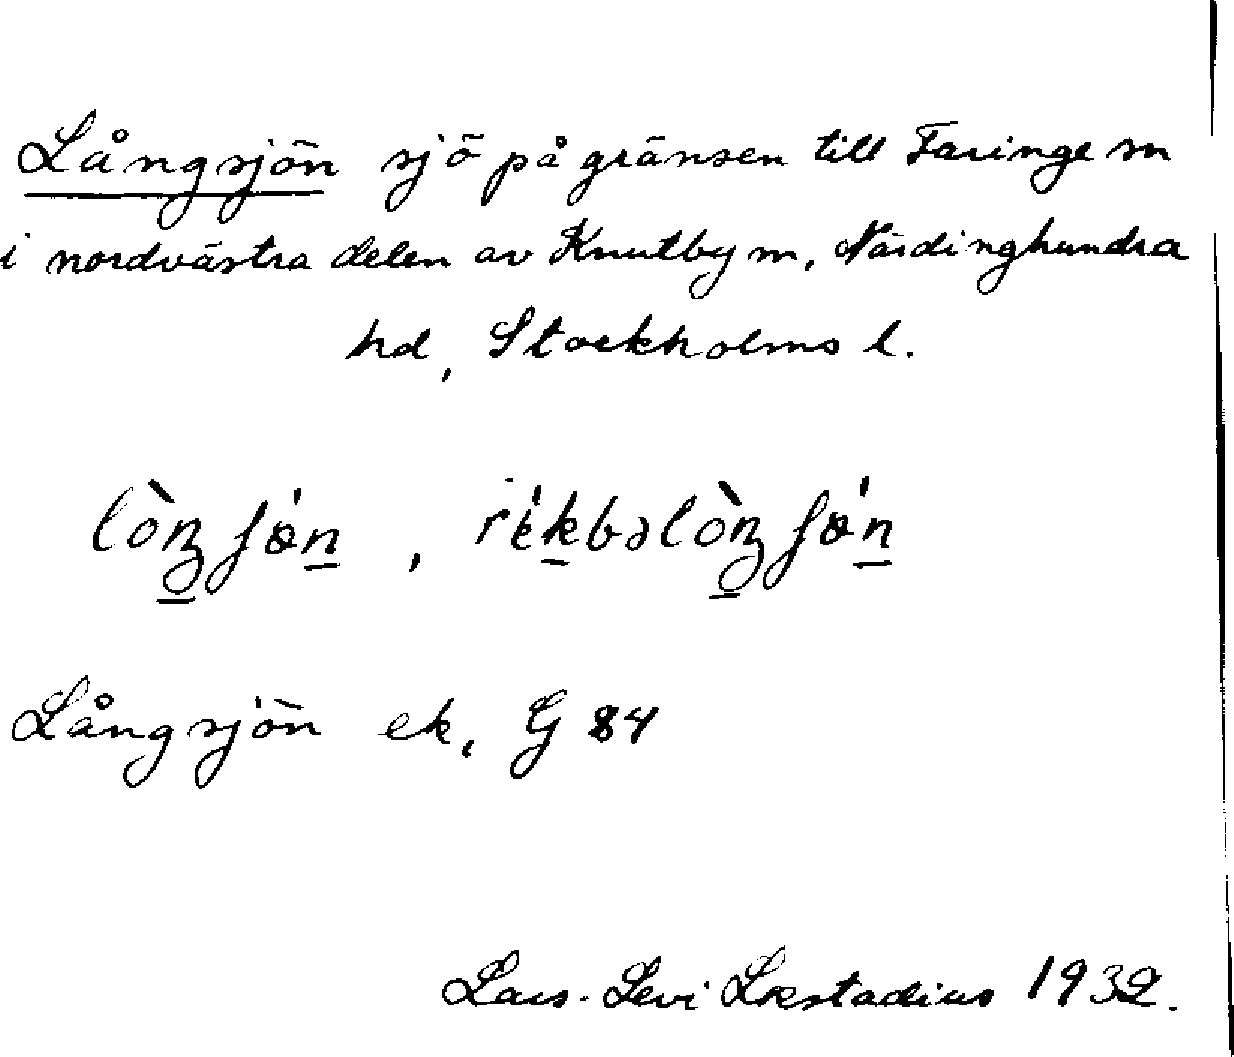 Långsjön sjö på gränsen till Faringe sn
i nordvästra delen av Knutby sn, Närdinghundra
hd, Stockholms l.
lòŋʃøn, rekbəlòŋʃøn
Långsjön ek, G 84
Lars-Levi Læstadius 1932.